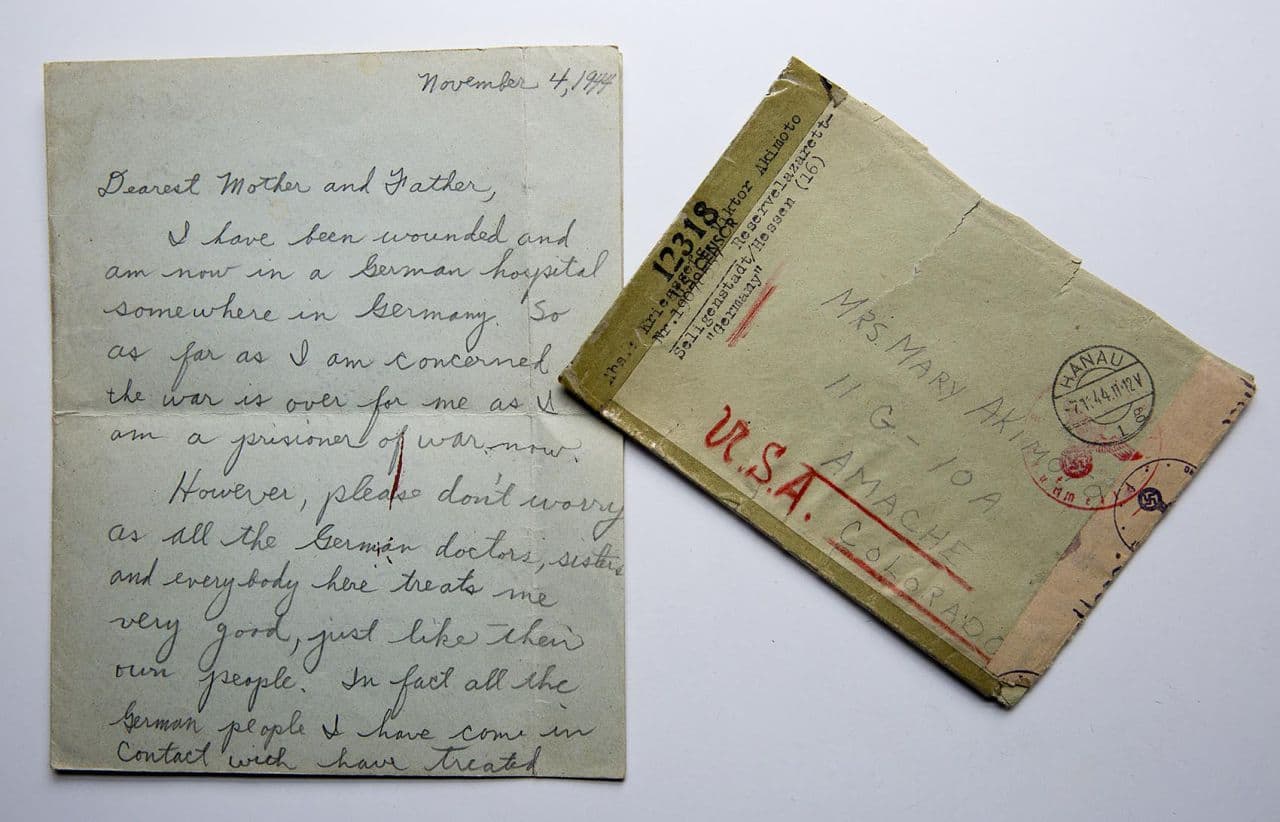 November 4, 1944
Dearest Mother and Father,
I have been wounded and
am now in a German hospital
somewhere in Germany. So
as far as I am concerned
the war is over for me as I
am a prisioner of war now.
However, please don't worry
as all the German doctors, sisters
and everybody here treats me
very good, just like their
own people. In fact all the
German people I have come in
Contact with have treated
12318
CENSOR
Viktor Akimoto
Reservelazarett-
Seligenstadt/Hessen (16)
"Germany"
MRS. MARY AKIMOTO
11 G - 10 A
AMACHE
COLORADO
U.S.A.
HANAU
7.11.44.11-12V